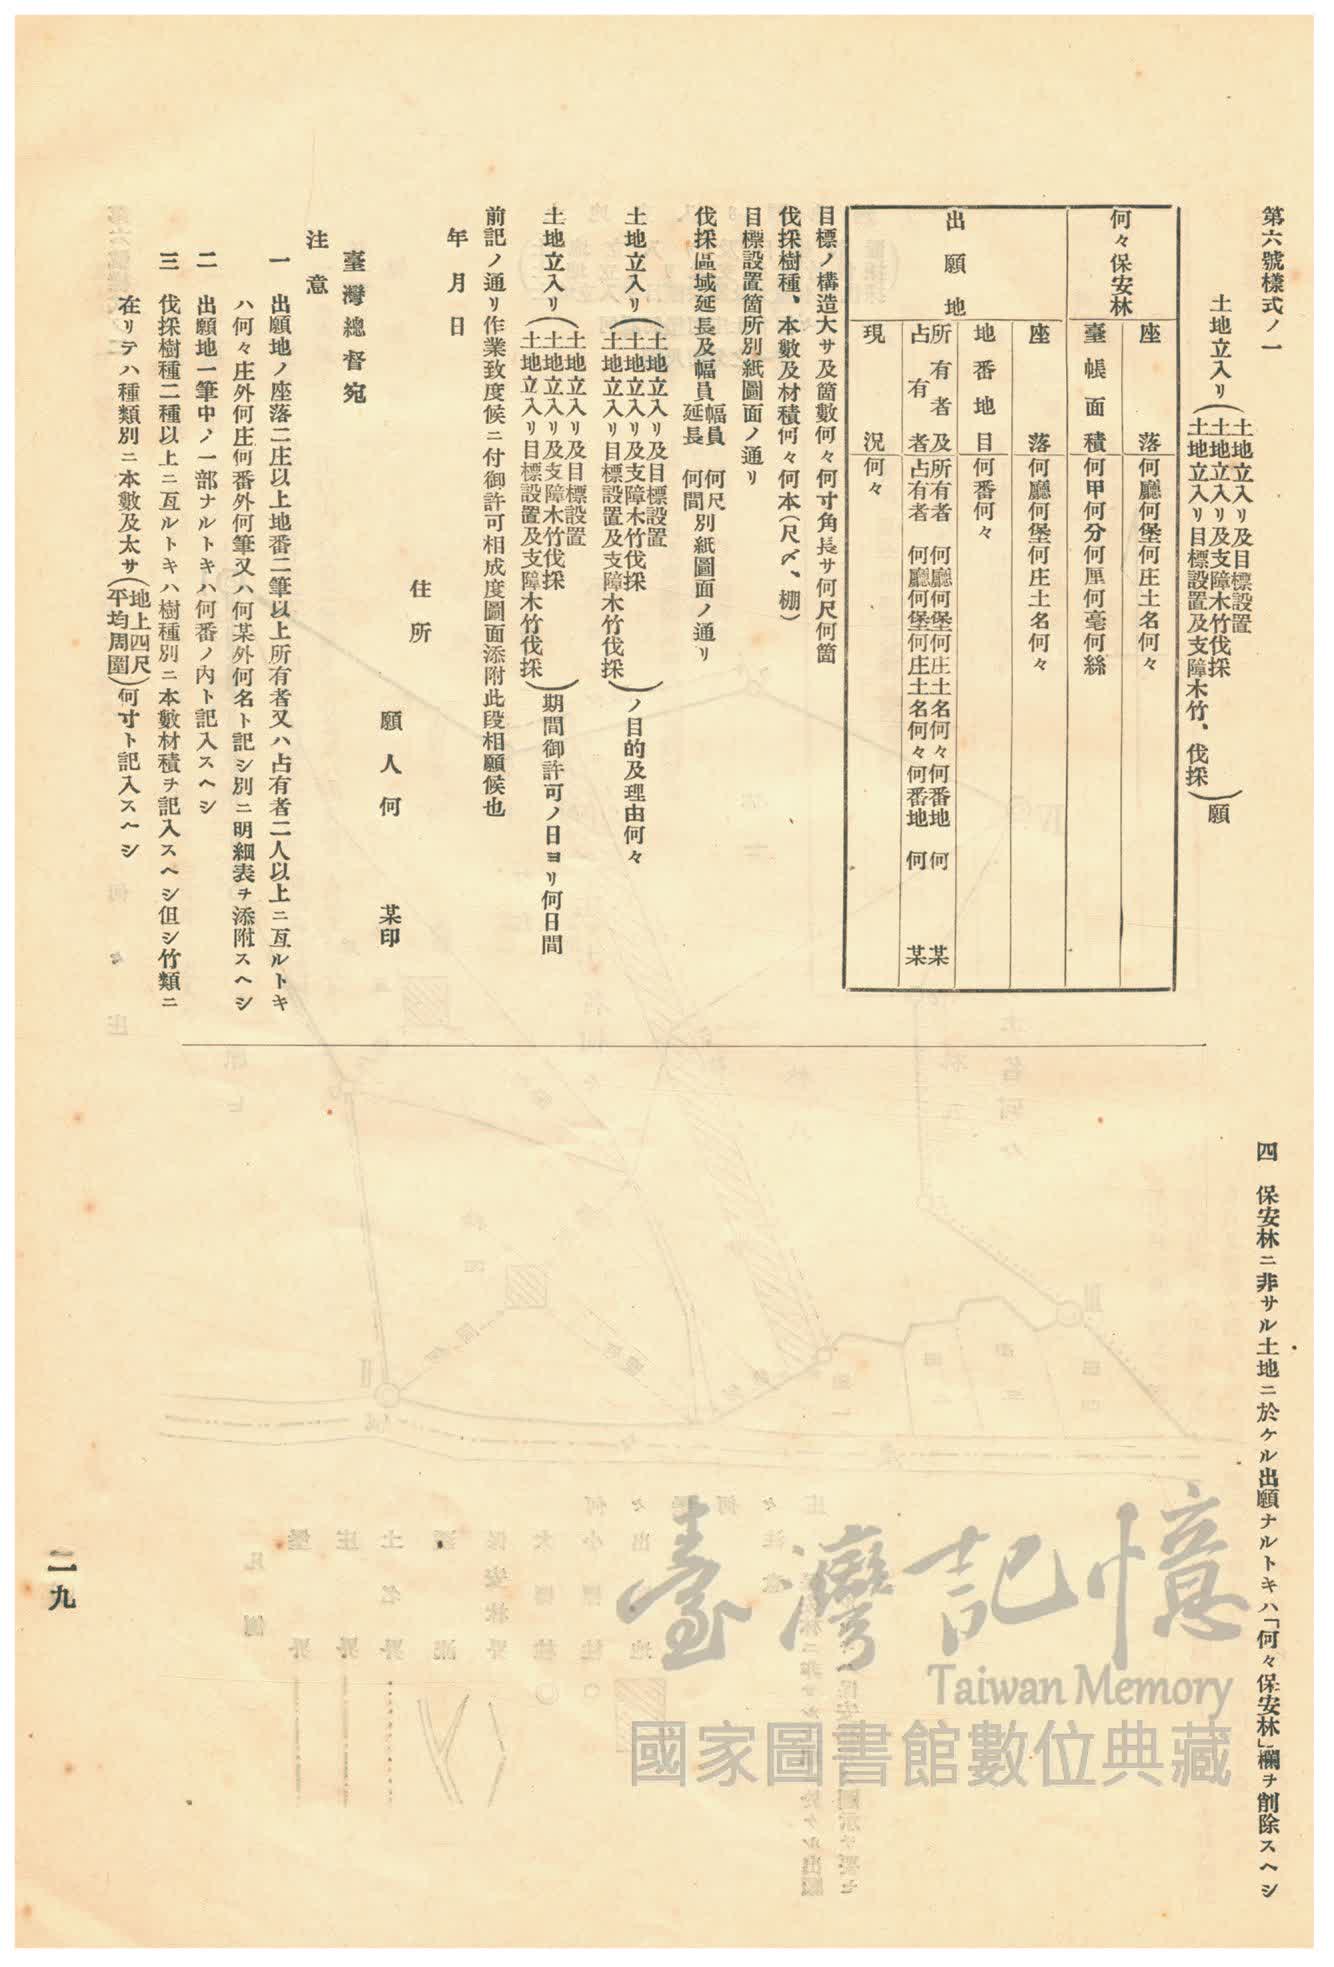 第六號樣式ノ一
土地立入リ(土地立入リ及目標設置
土地立入リ及支障木竹伐採
土地立入リ目標設置及支障木竹、伐採)願
何々保安林
座落 何廳何堡何庄土名何々
臺帳面積 何甲何分何厘何毫何絲
出願地
座落 何廳何堡何庄土名何々
地番地目 何番何々
所有者及占有者 所有者 何廳何堡何庄土名何々何番地 何某
占有者 何廳何堡何庄土名何々何番地 何某
現況 何々
目標ノ構造大サ及箇數何々何寸角長サ何尺何箇
伐採樹種、本數及材積何々何本(尺〆、棚)
目標設置箇所別紙圖面ノ通リ
伐採區域延長及幅員 幅員 何尺
延長 何間 別紙圖面ノ通リ
土地立入リ(土地立入リ及目標設置
土地立入リ及支障木竹伐採
土地立入リ目標設置及支障木竹伐採)ノ目的及理由何々
土地立入リ(土地立入リ及目標設置
土地立入リ及支障木竹伐採
土地立入リ目標設置及支障木竹伐採)期間御許可ノ日ヨリ何日間
前記ノ通リ作業致度候ニ付御許可相成度圖面添附此段相願候也
年月日
住所
願人何某印
臺灣總督宛
注意
一 出願地ノ座落二庄以上地番二筆以上所有者又ハ占有者二人以上ニ亙ルトキ
ハ何々庄外何庄何番外何筆又ハ何某外何名ト記シ別ニ明細表ヲ添附スヘシ
二 出願地一筆中ノ一部ナルトキハ何番ノ內ト記入スヘシ
三 伐採樹種二種以上ニ亙ルトキハ樹種別ニ本數材積ヲ記入スヘシ但シ竹類ニ
在リテハ種類別ニ本數及太サ(地上四尺
平均周圍)何寸ト記入スヘシ
四 保安林ニ非サル土地ニ於ケル出願ナルトキハ「何々保安林」欄ヲ削除スヘシ
二九
臺灣記憶
Taiwan Memory
國家圖書館數位典藏